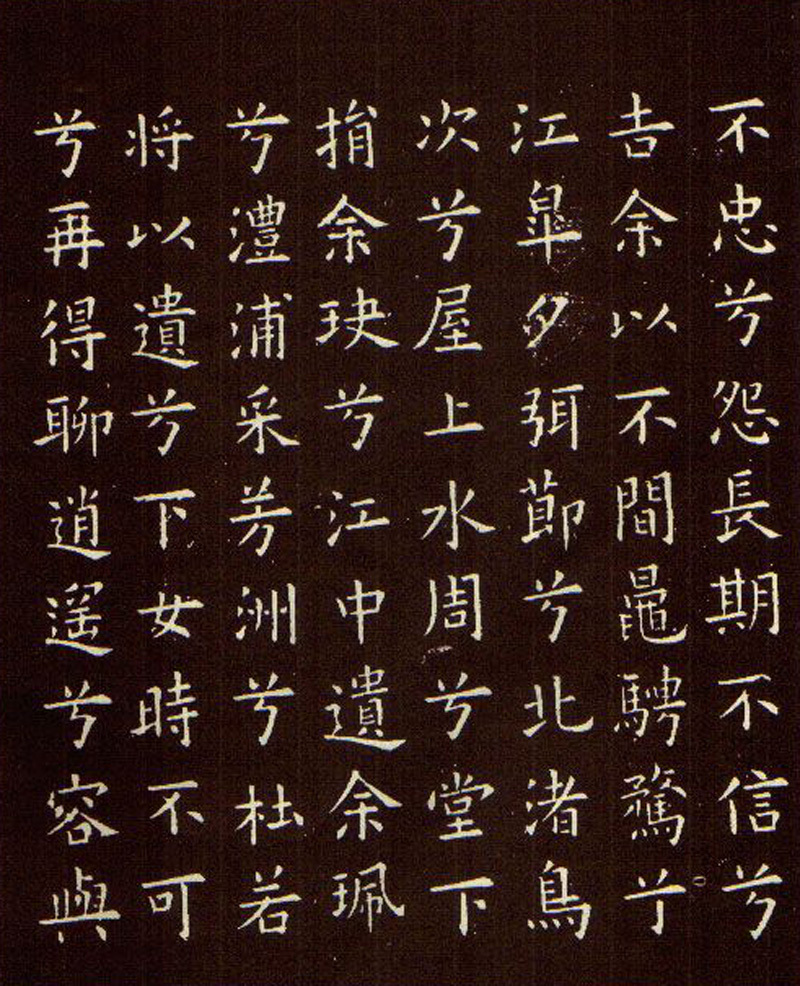 不忠兮怨長期不信兮
吉余以不間鼂騁騖兮
江皐夕弭節兮北渚鳥
次兮屋上水周兮堂下
捐余玦兮江中遺余珮
兮澧浦采芳洲兮杜若
将以遺兮下女時不可
兮再得聊逍遥兮容與